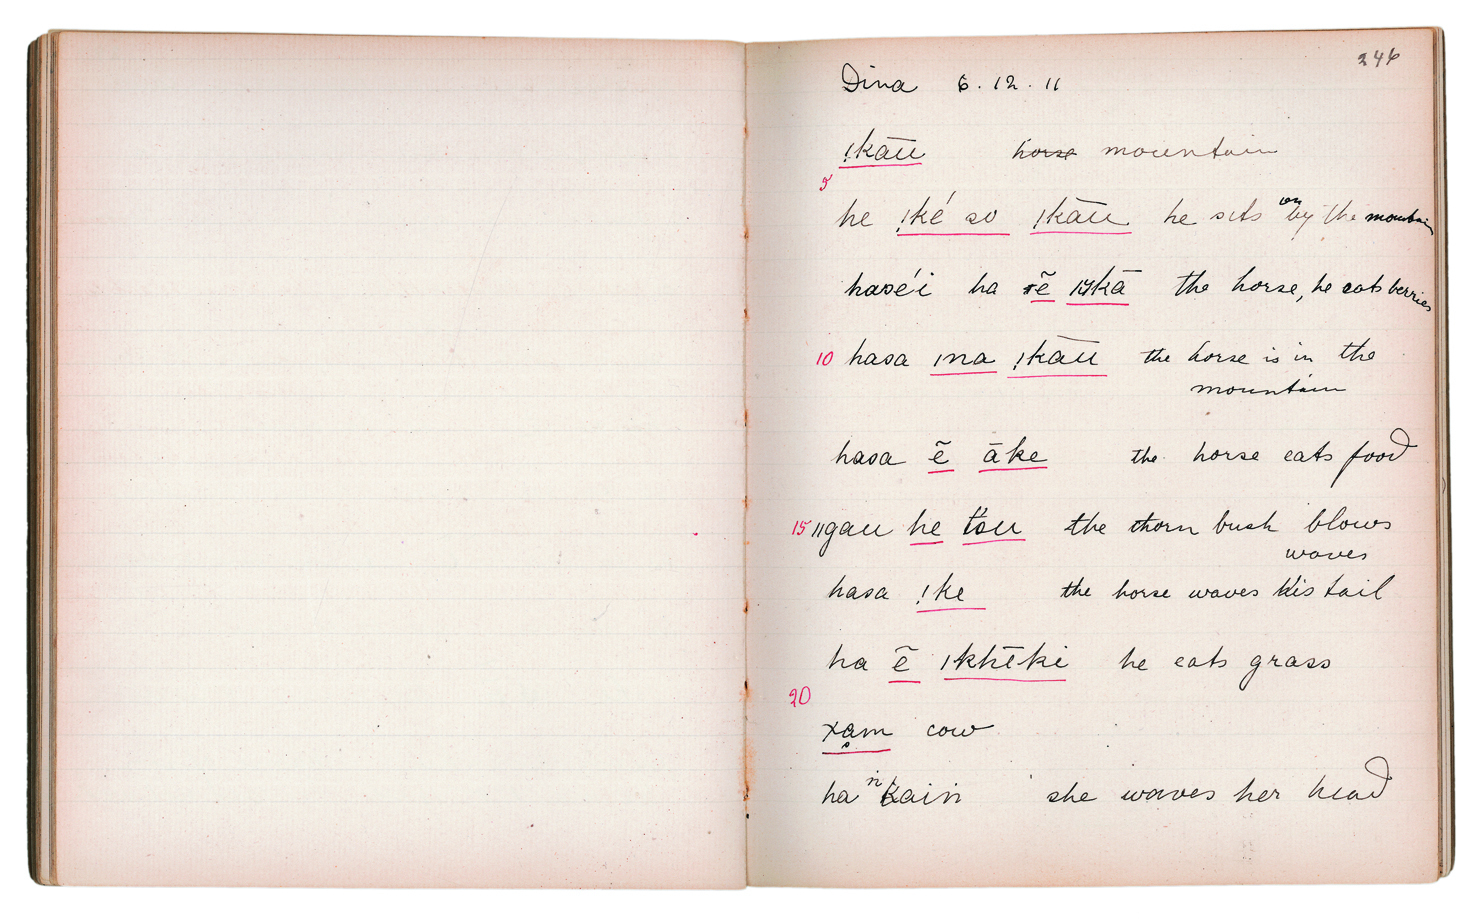 246
Dina 6.12.11
!kāū horse mountain
5
he !ké so !kāū he sits on by the mountain
hasé'i ha sẽ ıŋkā the horse, he eats berries
10 hasa ına !kāū the horse is in the
mountain
hasa ẽ āke the horse eats food
15 ǁgau he tsu the thorn bush blows
waves
hasa !ke the horse waves his tail
ha ẽ ıkhēki he eats grass
20
xam cow
ha ṅkain she waves her head